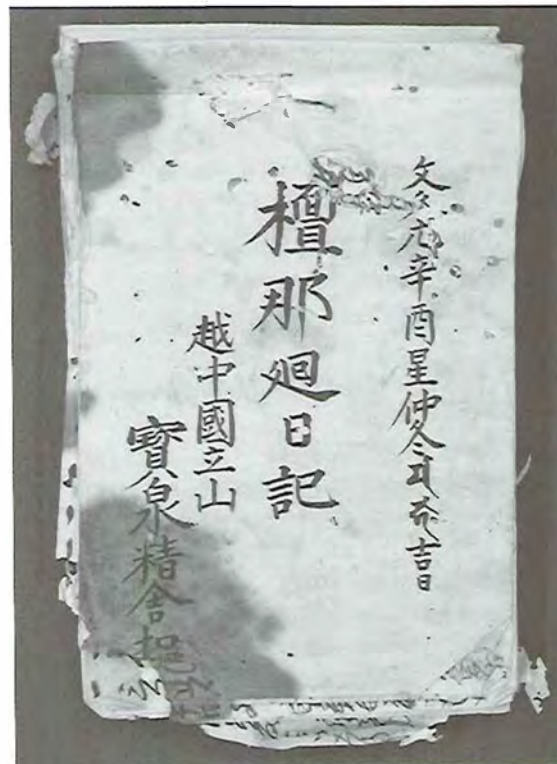 文久元辛酉星仲冬吉日
檀那廻日記
越中國立山
寶泉精舎